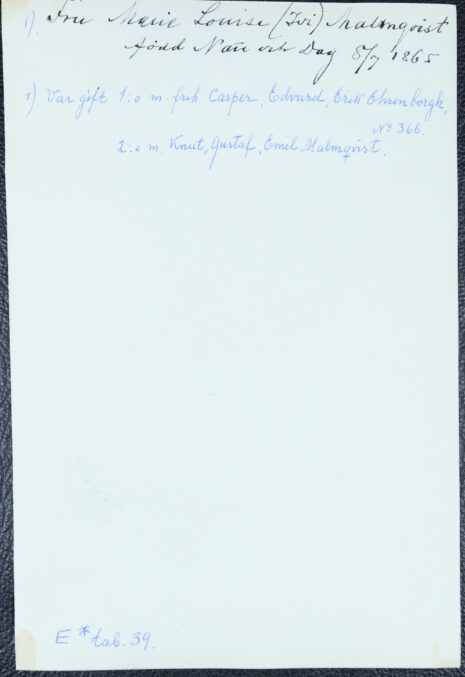 1). Fru Marie Louise (Ivi) Malmqvist
född Natt och Dag 8/7 1865
1) Var gift 1:o m. frih. Casper, Edvard, Erik Ehrenborgh,
No 366.
2:o m. Knut, Gustaf, Emil Malmqvist.
E * tab. 39.